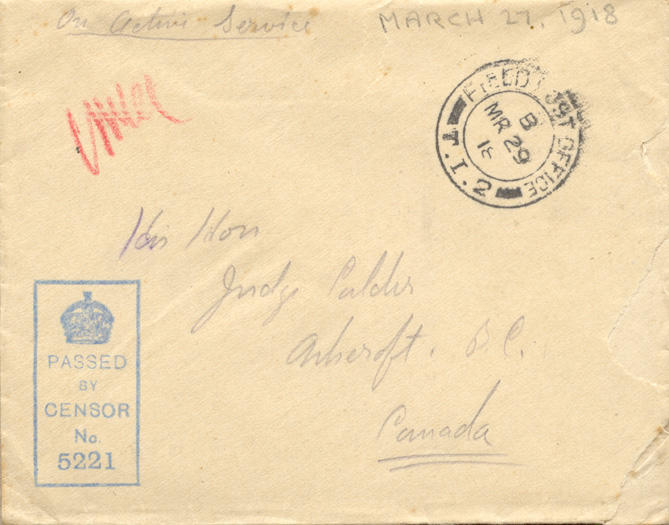 On Active Service
MARCH 27, 1918
FIELD POST OFFICE
B
MR 29
18
T.I.2
His Hon
Judge Calder
Ashcroft. B.C.
Canada
PASSED
BY
CENSOR
No.
5221